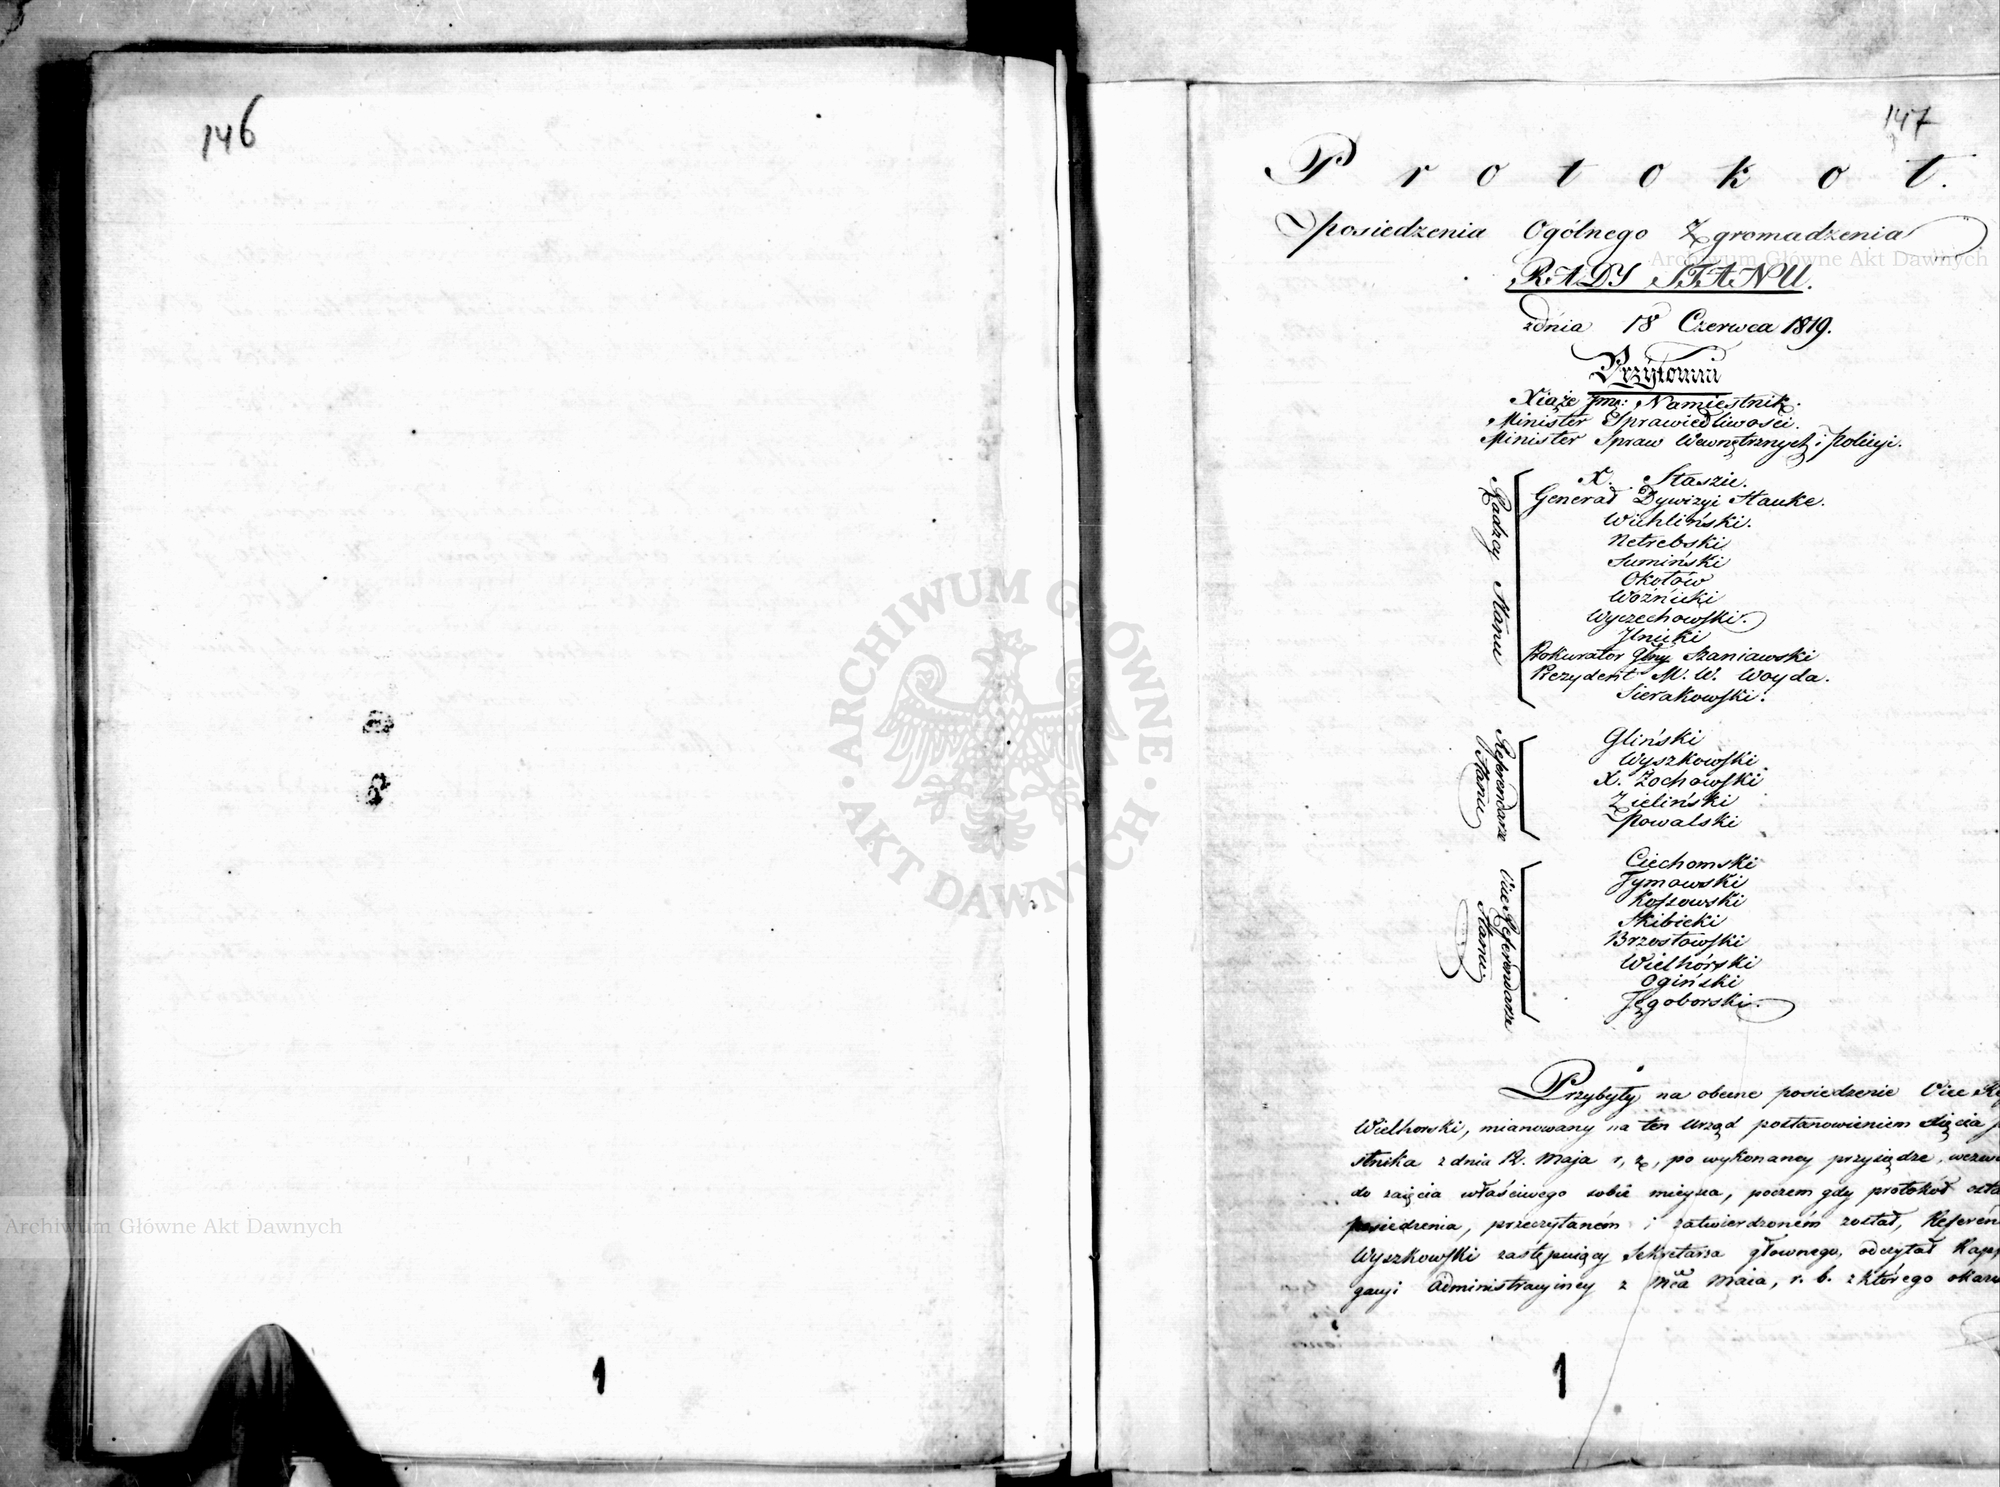 146
147
Protokoł.
posiedzenia Ogólnego Zgromadzenia
RADY STANU.
zdnia 18 Czerwca 1819.
Przytomni
Xiąże Jmć: Namiestnik.
Minister Sprawiedliwości.
Minister Spraw Wewnętrznych i Policyi.
Radzcy Stanu
X. Staszic.
Generał Dywizyi Hauke.
Wichliński.
Netrebski
Sumiński
Okołów
Woźnicki
Wyczechowski.
Jlnicki
Prokurator Glny Szaniawski
Prezydent M. W. Woyda.
Sierakowski.
Referendarze Stanu
Gliński
Wyszkowski
X. Żochowski
Zieliński
Powalski
Vice Referendarze Stanu
Ciechomski
Tymowski
Kossowski
Skibicki
Brzostowski
Wielhórski
Ogiński
Tęgoborski.
Przybyły na obecne posiedzenie Vice
Wielhorski, mianowany na ten Urząd postanowieniem Xięcia
stnika z dnia 12. Maja r, z, po wykonaney przysiądze,
do zajęcia właściwego sobie mieysca, poczem gdy protokoł
posiedzenia, przeczytaném i zatwierdzoném został,
Wyszkowski zastępuiący Sekretarza głownego, odczytał
gacyi Administracyiney z Mca Maia, r. b. z którego
1
1
Archiwum Główne Akt Dawnych
Archiwum Główne Akt Dawnych
ARCHIWUM GŁÓWNE · AKT DAWNYCH ·